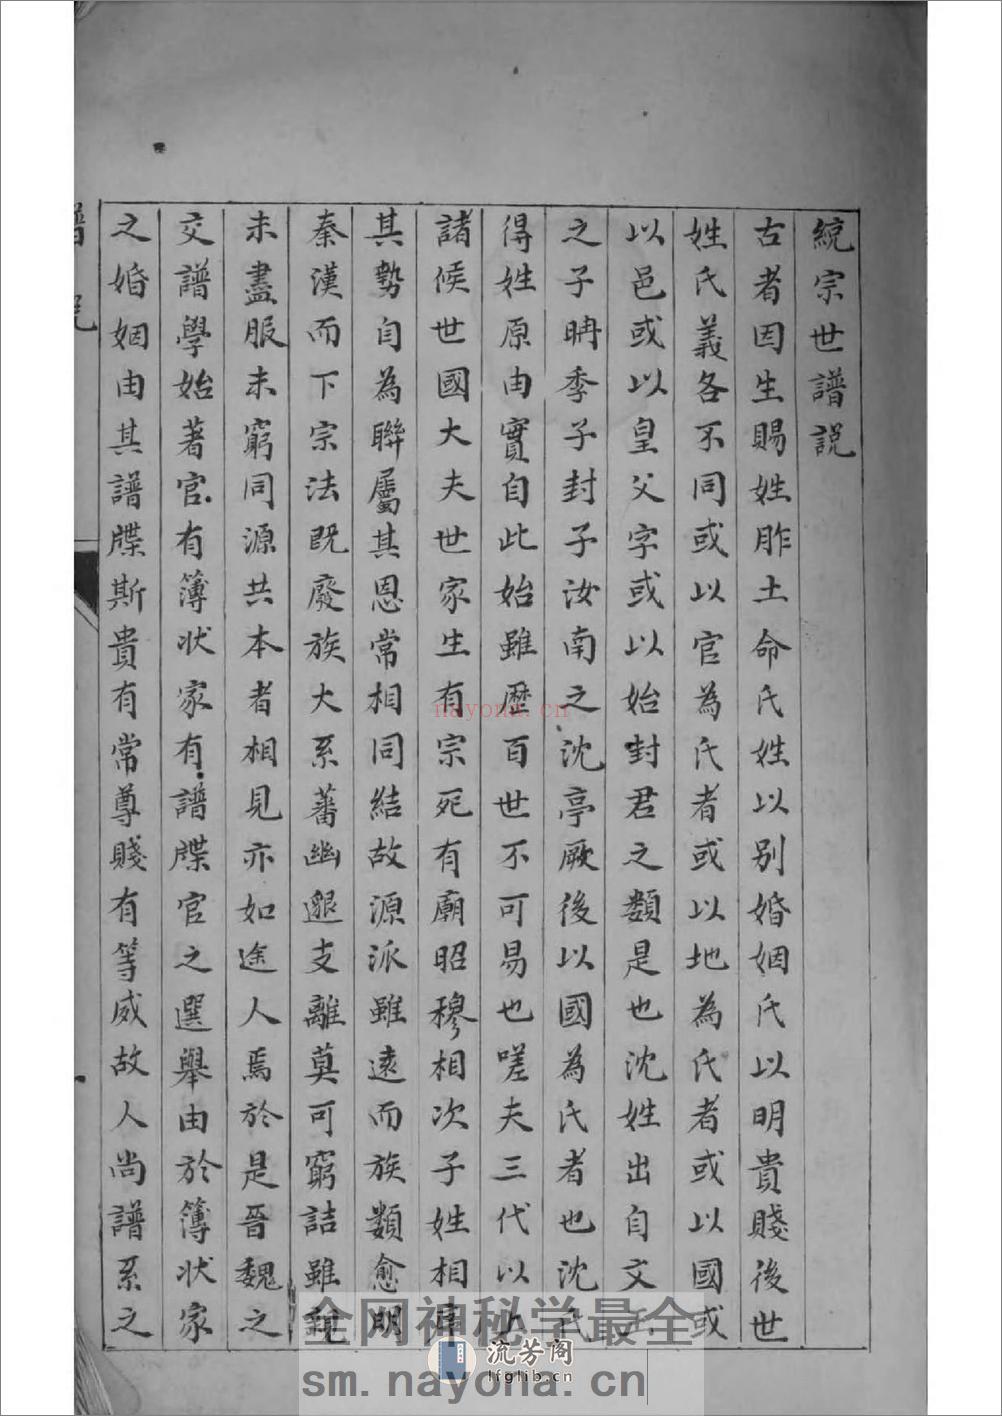 統宗世譜説
古者因生賜姓胙土命氏姓以别婚姻氏以明貴賤後世
姓氏義各不同或以官為氏者或以地為氏者或以國或
以邑或以皇父字或以始封君之類是也沈姓出自文王
之子聃季子封子汝南之沈亭厥後以國為氏者也沈氏
得姓原由實自此始雖歷百世不可易也嗟夫三代以上
諸候世國大夫世家生有宗死有廟昭穆相次子姓相序
其勢自為聯屬其恩常相同結故源派雖遠而族類愈明
秦漢而下宗法既廢族大系蕃幽邈支離莫可窮詰雖親
未盡服未窮同源共本者相見亦如途人焉於是晉魏之
交譜學始著官有簿状家有譜牒官之選舉由於簿状家
之婚姻由其譜牒斯貴有常尊賤有等威故人尚譜系之
譜
nayona.cn
全网神秘学最全
流芳阁
lfglib.cn
sm.nayona.cn